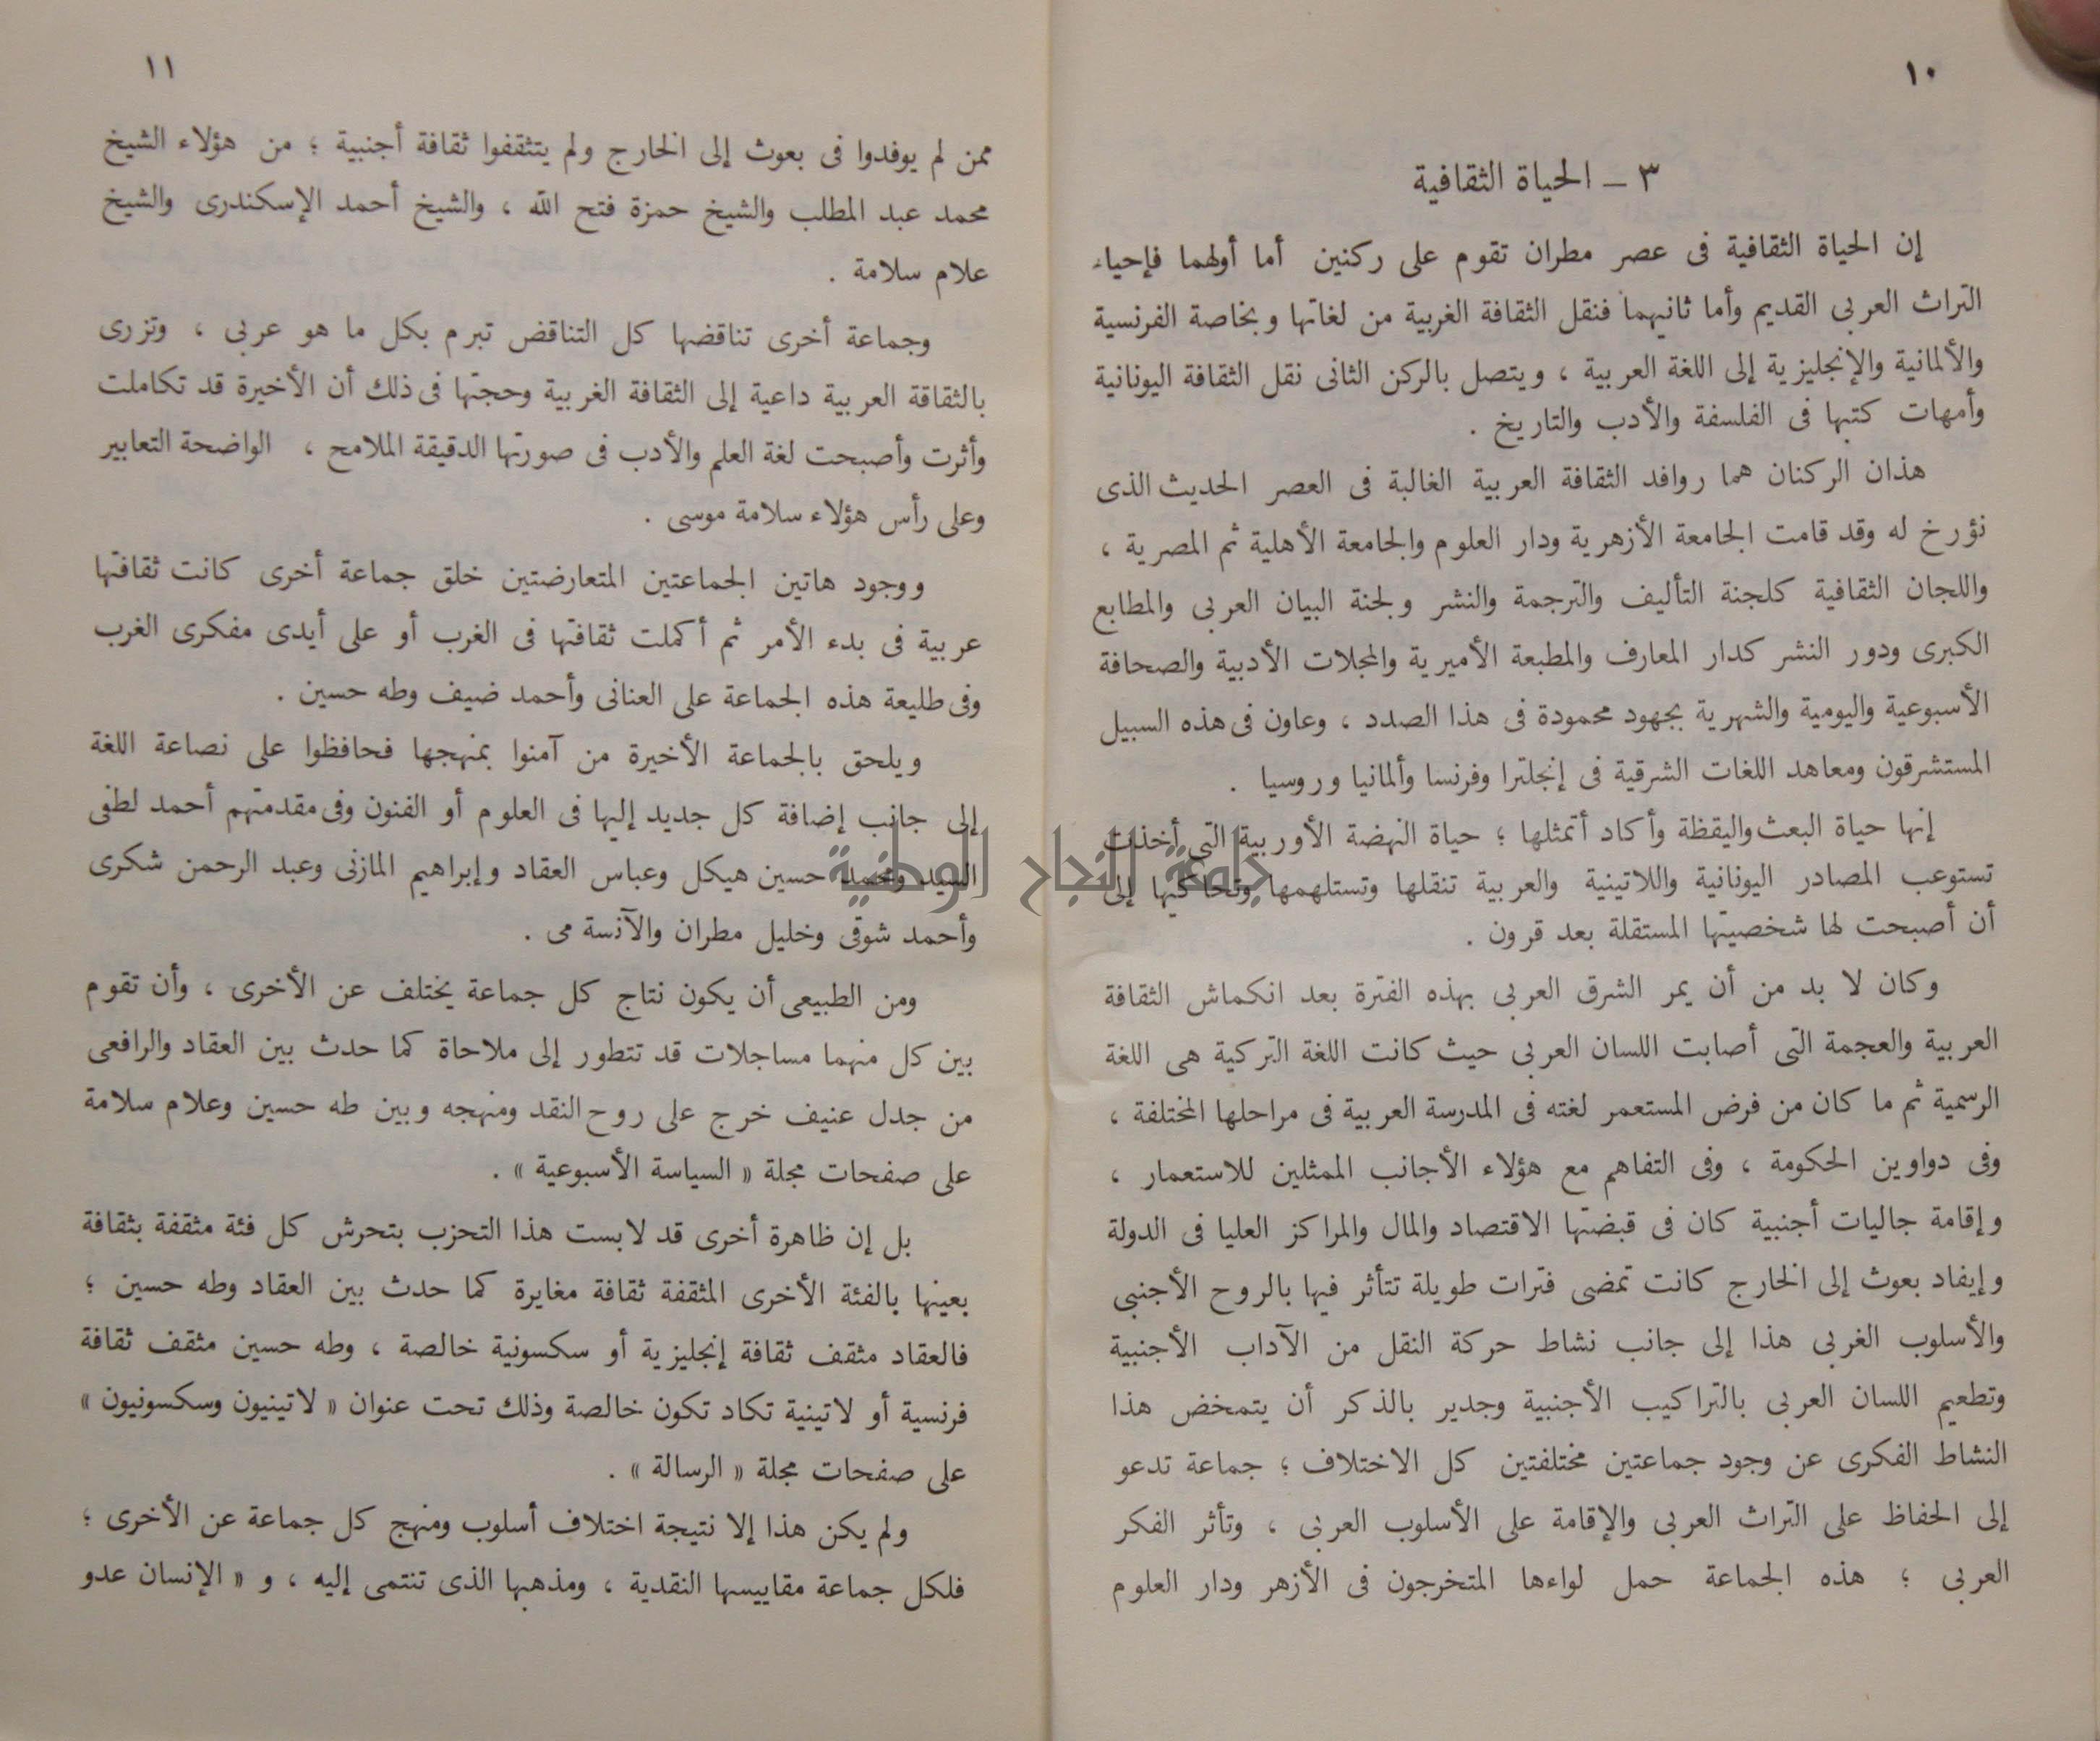 ١٠
٣ – الحياة الثقافية
إن الحياة الثقافية فى عصر مطران تقوم على ركنين أما أولهما فإحياء
التراث العربى القديم وأما ثانيهما فنقل الثقافة الغربية من لغاتها وبخاصة الفرنسية
والألمانية والإنجليزية إلى اللغة العربية ، ويتصل بالركن الثانى نقل الثقافة اليونانية
وأمهات كتبها فى الفلسفة والأدب والتاريخ .
هذان الركنان هما روافد الثقافة العربية الغالبة فى العصر الحديث الذى
نؤرخ له وقد قامت الجامعة الأزهرية ودار العلوم والجامعة الأهلية ثم المصرية ،
واللجان الثقافية كلجنة التأليف والترجمة والنشر ولجنة البيان العربى والمطابع
الكبرى ودور النشر كدار المعارف والمطبعة الأميرية والمجلات الأدبية والصحافة
الأسبوعية واليومية والشهرية بجهود محمودة فى هذا الصدد ، وعاون فى هذه السبيل
المستشرقون ومعاهد اللغات الشرقية فى إنجلترا وفرنسا وألمانيا وروسيا .
إنها حياة البعث واليقظة وأكاد أتمثلها ؛ حياة النهضة الأوربية التى أخذت
تستوعب المصادر اليونانية واللاتينية والعربية تنقلها وتستلهمها وتحاكيها إلى
أن أصبحت لها شخصيتها المستقلة بعد قرون .
وكان لا بد من أن يمر الشرق العربى بهذه الفترة بعد انكماش الثقافة
العربية والعجمة التى أصابت اللسان العربى حيث كانت اللغة التركية هى اللغة
الرسمية ثم ما كان من فرض المستعمر لغته فى المدرسة العربية فى مراحلها المختلفة ،
وفى دواوين الحكومة ، وفى التفاهم مع هؤلاء الأجانب الممثلين للاستعمار ،
وإقامة جاليات أجنبية كان فى قبضتها الاقتصاد والمال والمراكز العليا فى الدولة
وإيفاد بعوث إلى الخارج كانت تمضى فترات طويلة تتأثر فيها بالروح الأجنبى
والأسلوب الغربى هذا إلى جانب نشاط حركة النقل من الآداب الأجنبية
وتطعيم اللسان العربى بالتراكيب الأجنبية وجدير بالذكر أن يتمخض هذا
النشاط الفكرى عن وجود جماعتين مختلفتين كل الاختلاف ؛ جماعة تدعو
إلى الحفاظ على التراث العربى والإقامة على الأسلوب العربى ، وتأثر الفكر
العربى ؛ هذه الجماعة حمل لواءها المتخرجون فى الأزهر ودار العلوم
١١
ممن لم يوفدوا فى بعوث إلى الخارج ولم يتثقفوا ثقافة أجنبية ؛ من هؤلاء الشيخ
محمد عبد المطلب والشيخ حمزة فتح الله ، والشيخ أحمد الإسكندرى والشيخ
علام سلامة .
وجماعة أخرى تناقضها كل التناقض تبرم بكل ما هو عربى ، وتزرى
بالثقاقة العربية داعية إلى الثقافة الغربية وحجتها فى ذلك أن الأخيرة قد تكاملت
وأثرت وأصبحت لغة العلم والأدب فى صورتها الدقيقة الملامح ، الواضحة التعابير
وعلى رأس هؤلاء سلامة موسى .
ووجود هاتين الجماعتين المتعارضتين خلق جماعة أخرى كانت ثقافتها
عربية فى بدء الأمر ثم أكملت ثقافتها فى الغرب أو على أيدى مفكرى الغرب
وفى طليعة هذه الجماعة على العنانى وأحمد ضيف وطه حسين .
ويلحق بالجماعة الأخيرة من آمنوا بمنهجها فحافظوا على نصاعة اللغة
إلى جانب إضافة كل جديد إليها فى العلوم أو الفنون وفى مقدمتهم أحمد لطفى
السيد ومحمد حسين هيكل وعباس العقاد وإبراهيم المازنى وعبد الرحمن شكرى
وأحمد شوقى وخليل مطران والآنسة مى .
ومن الطبيعى أن يكون نتاج كل جماعة يختلف عن الأخرى ، وأن تقوم
بين كل منهما مساجلات قد تتطور إلى ملاحاة كما حدث بين العقاد والرافعى
من جدل عنيف خرج على روح النقد ومنهجه وبين طه حسين وعلام سلامة
على صفحات مجلة « السياسة الأسبوعية » .
بل إن ظاهرة أخرى قد لابست هذا التحزب بتحرش كل فئة مثقفة بثقافة
بعينها بالفئة الأخرى المثقفة ثقافة مغايرة كما حدث بين العقاد وطه حسين ؛
فالعقاد مثقف ثقافة إنجليزية أو سكسونية خالصة ، وطه حسين مثقف ثقافة
فرنسية أو لاتينية تكاد تكون خالصة وذلك تحت عنوان « لاتينيون وسكسونيون »
على صفحات مجلة « الرسالة » .
ولم يكن هذا إلا نتيجة اختلاف أسلوب ومنهج كل جماعة عن الأخرى ؛
فلكل جماعة مقاييسها النقدية ، ومذهبها الذى تنتمى إليه ، و « الإنسان عدو
جامعة النجاح الوطنية